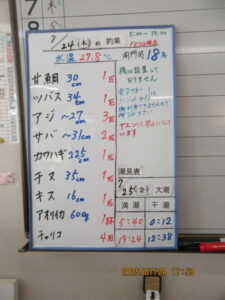 7/24(木)の釣果
5:00〜19:00
水温 27.8℃
開門前 18名
甘鯛 30cm 1匹
ツバス 34cm 1匹
アジ 〜27cm 3匹
サバ 〜31cm 2匹
カワハギ 22.5cm 1匹
チヌ 35cm 1匹
キス 16cm 1匹
アオリイカ 600g 1杯
チャリコ 4匹
おりません
います
潮見表
7/25(金) 大潮
満潮 干潮
5:40 0:12
19:24 12:38
2025/07/24 17:53